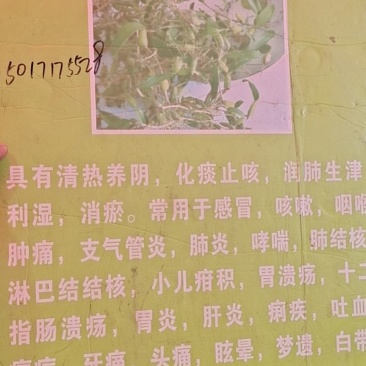 5017175528
具有清热养阴，化痰止咳，润肺生津
利湿，消瘀。常用于感冒，咳嗽，咽喉
肿痛，支气管炎，肺炎，哮喘，肺结核
淋巴结结核，小儿疳积，胃溃疡，十二
指肠溃疡，胃炎，肝炎，痢疾，吐血
牙痛，头痛，眩晕，梦遗，白带